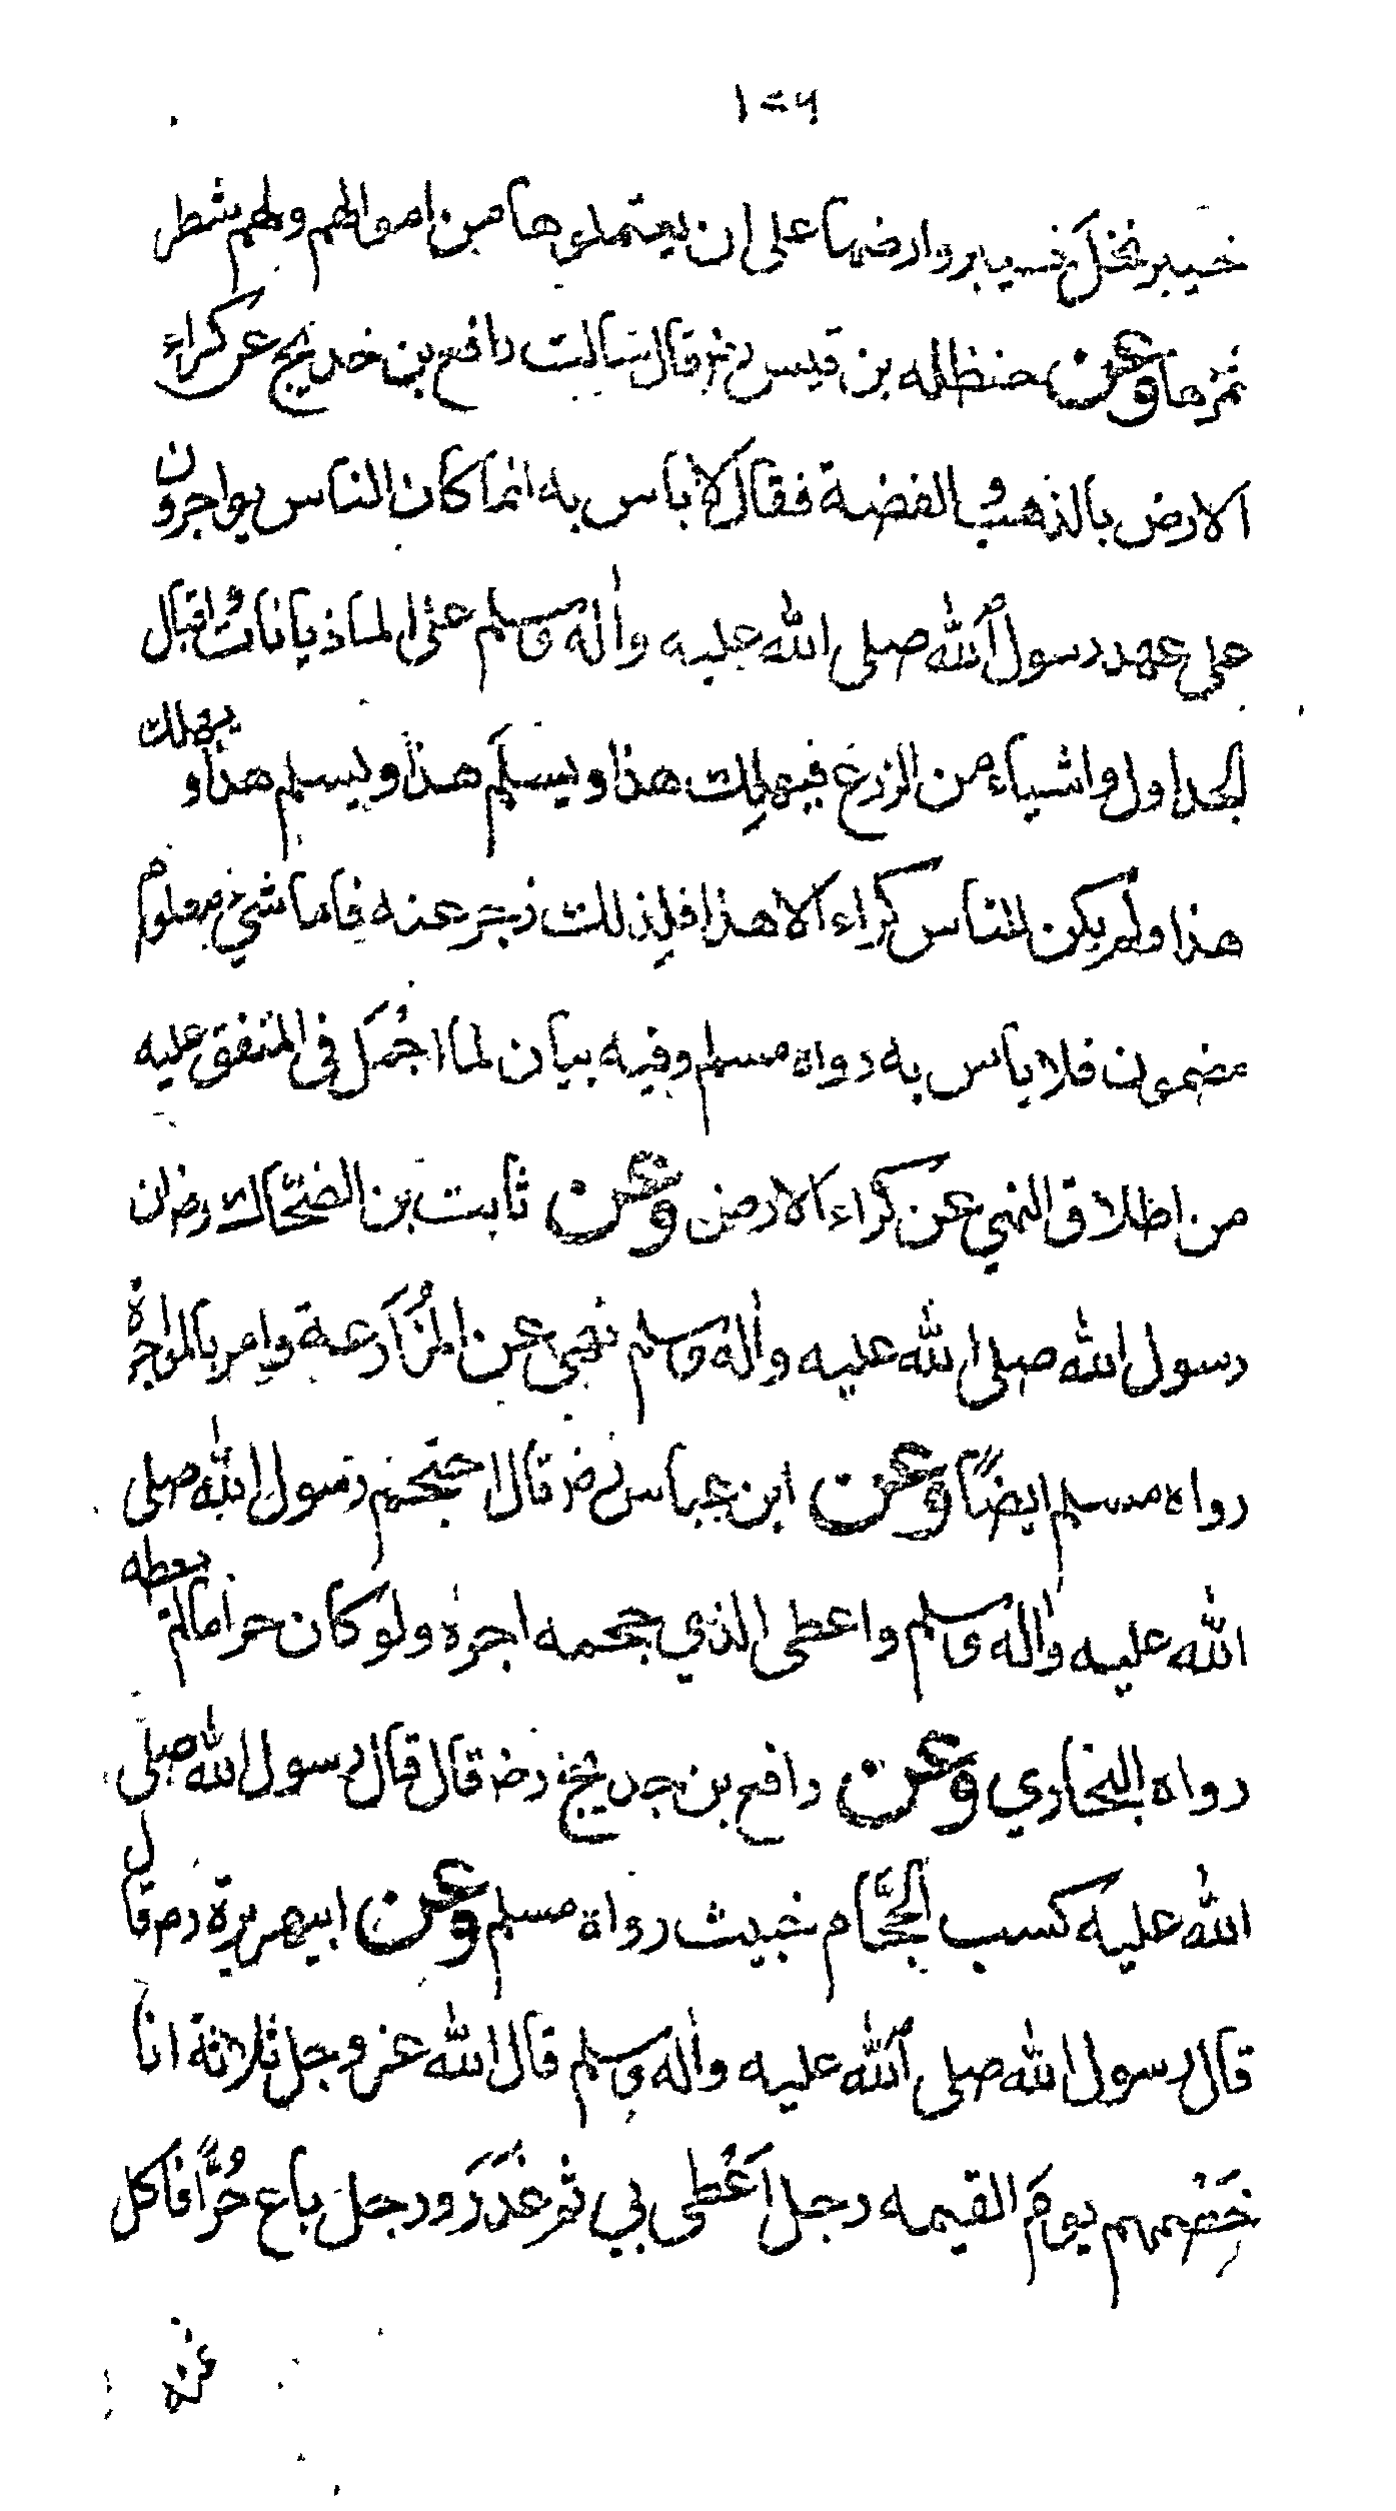 خيبر نخل خيبر وارضها على ان يعتملوها من اموالهم ولهم شطر
ثمرها وعن حنظله بن قيس رضـ قال سالت رافع بن خديج عن كراء
الارض بالذهب والفضة فقال لا باس به انما كان الناس يواجرون
على عهد رسول الله صلى الله عليه واله وسلم على الماذيانات واقبال
الجداول واشياء من الزرع فيهلك هذا ويسلم هذا ويسلم هذا ويهلك
هذا ولم يكن للناس كراء الا هذا فلذلك زجر عنه فاما شيء معلوم
مضمون فلا باس به رواه مسلم وفيه بيان لما اجمل في المتفق عليه
من اطلاق النهي عن كراء الارض وعن ثابت بن الضحاك رضـ ان
رسول الله صلى الله عليه واله وسلم نهى عن المُزَارعة وامر بالمواجرة
رواه مسلم ايضًا وعن ابن عباس رضـ قال احتجم رسول الله صلى
الله عليه واله وسلم واعطى الذي حجمه اجره ولو كان حراما لم يعطه
رواه البخاري وعن رافع بن خديج رضـ قال قال رسول الله صلى
الله عليه كسب الحجّام خبيث رواه مسلم وعن ابيهريرة رضـ قال
قال رسول الله صلى الله عليه واله وسلم قال الله عز وجل ثلاثة انا
خَصْمهم يومَ القيمه رجل اَعْطى بي ثم غَدَرَ ورجل باع حُرًّا فاكل